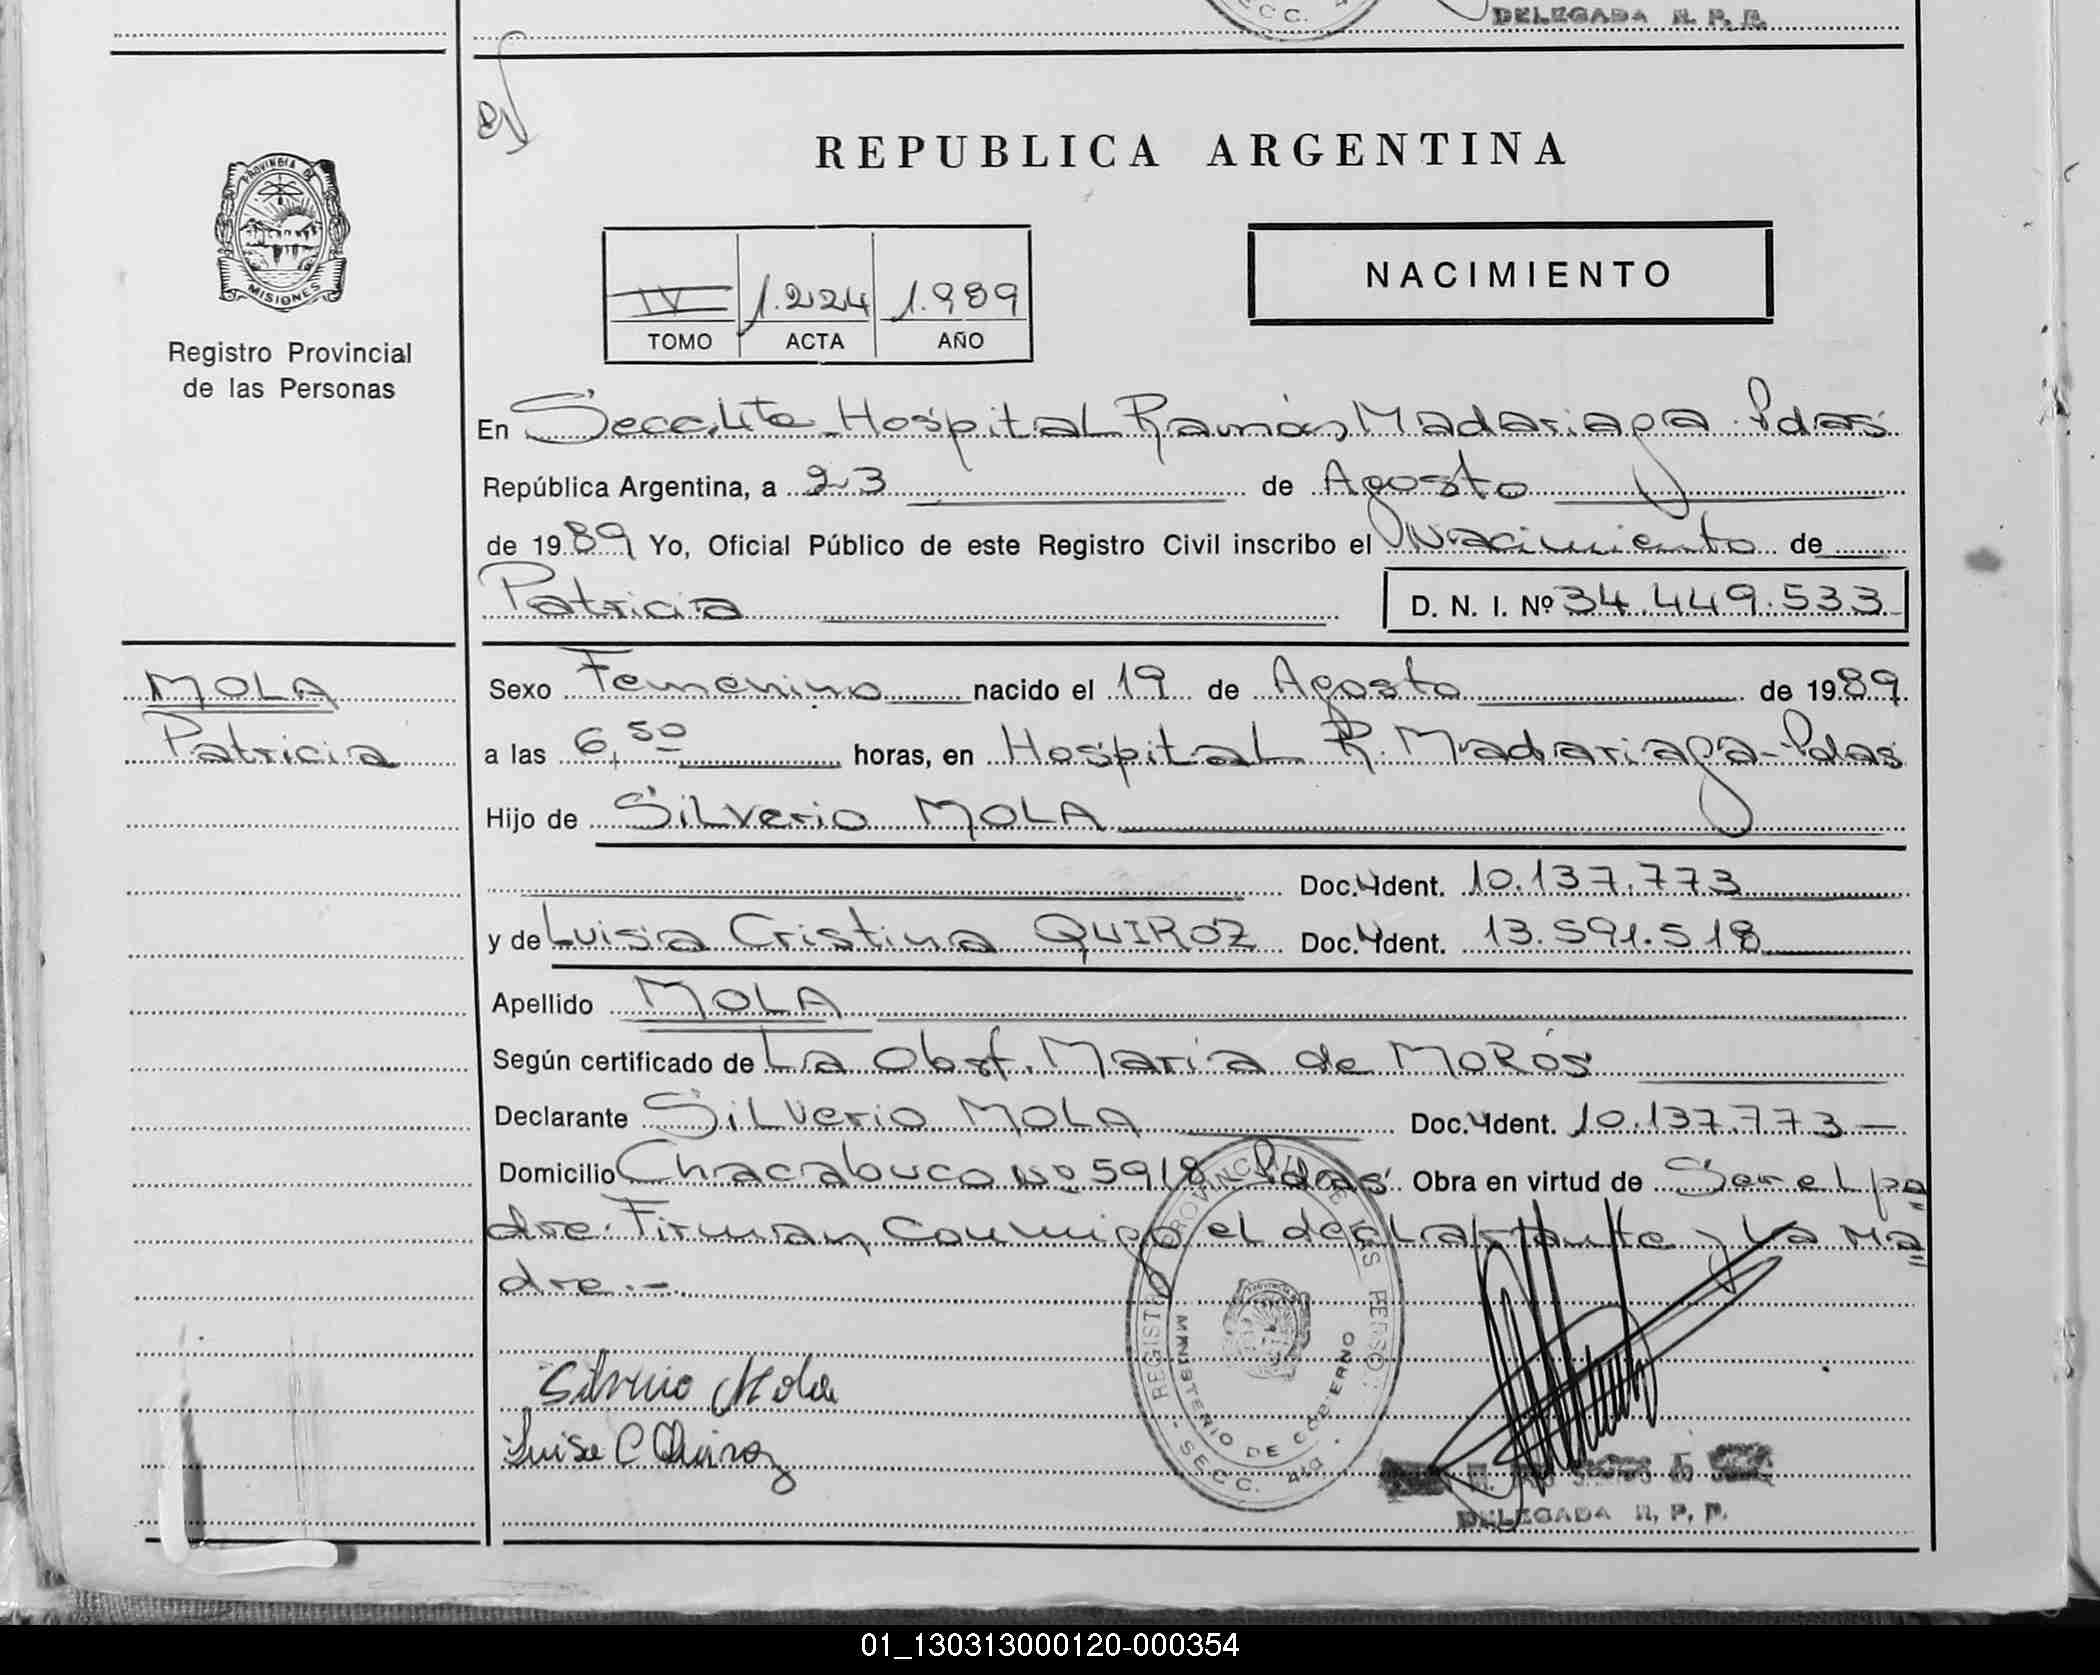 SECC.
DELEGADA R. P. P.
PROVINCIA DE
MISIONES
Registro Provincial
de las Personas
REPUBLICA ARGENTINA
IV 1.224 1.989
TOMO ACTA AÑO
NACIMIENTO
En Secc. 4ta. Hospital Ramón Madariaga. Pdas.
República Argentina, a 23 de Agosto
de 1989 Yo, Oficial Público de este Registro Civil inscribo el Nacimiento de
Patricia D. N. I. Nº 34.449.533
MOLA
Patricia
Sexo Femenino nacido el 19 de Agosto de 1989.
a las 6,50 horas, en Hospital R. Madariaga-Pdas
Hijo de Silverio MOLA
Doc. Ident. 10.137.773
y de Luisa Cristina QUIROZ Doc. Ident. 13.591.518
Apellido MOLA
Según certificado de La Obst. María de MORÓS
Declarante Silverio MOLA Doc. Ident. 10.137.773-
Domicilio Chacabuco Nº 5918 Pdas. Obra en virtud de Ser el pa
dre. Firman conmigo el declarante y la Ma
dre.-
Silverio Mola
Luisa C Quiroz
REGISTRO PROVINCIAL DE LAS PERSON.
MINISTERIO DE GOBIERNO
SECC. 4ta.
DELEGADA R. P. P.
01_130313000120-000354